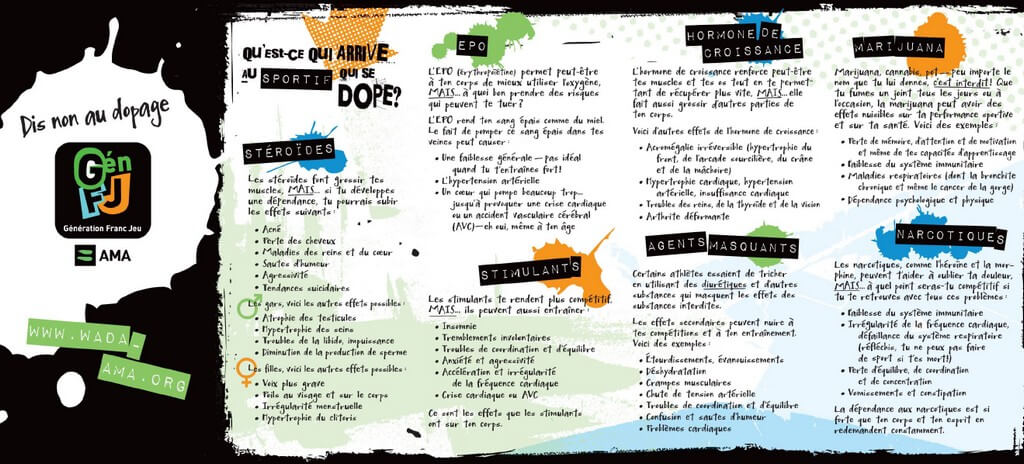 Dis non au dopage
Gén
FJ
Génération Franc Jeu
AMA
WWW.WADA_
AMA.ORG
QU'EST-CE QUI ARRIVE
AU SPORTIF QUI SE
DOPE?
STÉROÏDES
Les stéroïdes font grossir tes
muscles, MAIS... si tu développes
une dépendance, tu pourrais subir
les effets suivants :
• Acné
• Perte des cheveux
• Maladies des reins et du cœur
• Sautes d'humeur
• Agressivité
• Tendances suicidaires
Les gars, voici les autres effets possibles :
• Atrophie des testicules
• Hypertrophie des seins
• Troubles de la libido, impuissance
• Diminution de la production de sperme
Les filles, voici les autres effets possibles :
• Voix plus grave
• Poils au visage et sur le corps
• Irrégularité menstruelle
• Hypertrophie du clitoris
EPO
L'EPO (érythropoïétine) permet peut-être
à ton corps de mieux utiliser l'oxygène,
MAIS... à quoi bon prendre des risques
qui peuvent te tuer ?
L'EPO rend ton sang épais comme du miel.
Le fait de pomper ce sang épais dans tes
veines peut causer :
• Une faiblesse générale — pas idéal
quand tu t'entraînes fort !
• L'hypertension artérielle
• Un cœur qui pompe beaucoup trop...
jusqu'à provoquer une crise cardiaque
ou un accident vasculaire cérébral
(AVC) — eh oui, même à ton âge
STIMULANTS
Les stimulants te rendent plus compétitif,
MAIS... ils peuvent aussi entraîner :
• Insomnie
• Tremblements involontaires
• Troubles de coordination et d'équilibre
• Anxiété et agressivité
• Accélération et irrégularité
de la fréquence cardiaque
• Crise cardiaque ou AVC
Ce sont les effets que les stimulants
ont sur ton corps.
HORMONE DE
CROISSANCE
L'hormone de croissance renforce peut-être
tes muscles et tes os tout en te permet-
tant de récupérer plus vite, MAIS... elle
fait aussi grossir d'autres parties de
ton corps.
Voici d'autres effets de l'hormone de croissance :
• Acromégalie irréversible (hypertrophie du
front, de l'arcade sourcilière, du crâne
et de la mâchoire)
• Hypertrophie cardiaque, hypertension
artérielle, insuffisance cardiaque
• Troubles des reins, de la thyroïde et de la vision
• Arthrite déformante
AGENTS MASQUANTS
Certains athlètes essaient de tricher
en utilisant des diurétiques et d'autres
substances qui masquent les effets des
substances interdites.
Les effets secondaires peuvent nuire à
tes compétitions et à ton entraînement.
Voici des exemples :
• Étourdissements, évanouissements
• Déshydratation
• Crampes musculaires
• Chute de tension artérielle
• Troubles de coordination et d'équilibre
• Confusion et sautes d'humeur
• Problèmes cardiaques
MARIJUANA
Marijuana, cannabis, pot — peu importe le
nom que tu lui donnes, c'est interdit ! Que
tu fumes un joint tous les jours ou à
l'occasion, la marijuana peut avoir des
effets nuisibles sur ta performance sportive
et sur ta santé. Voici des exemples :
• Perte de mémoire, d'attention et de motivation
et même de tes capacités d'apprentissage
• Faiblesse du système immunitaire
• Maladies respiratoires (dont la bronchite
chronique et même le cancer de la gorge)
• Dépendance psychologique et physique
NARCOTIQUES
Les narcotiques, comme l'héroïne et la mor-
phine, peuvent t'aider à oublier ta douleur,
MAIS... à quel point seras-tu compétitif si
tu te retrouves avec tous ces problèmes :
• Faiblesse du système immunitaire
• Irrégularité de la fréquence cardiaque,
défaillance du système respiratoire
(réfléchis, tu ne peux pas faire
de sport si t'es mort !)
• Perte d'équilibre, de coordination
et de concentration
• Vomissements et constipation
La dépendance aux narcotiques est si
forte que ton corps et ton esprit en
redemandent constamment.